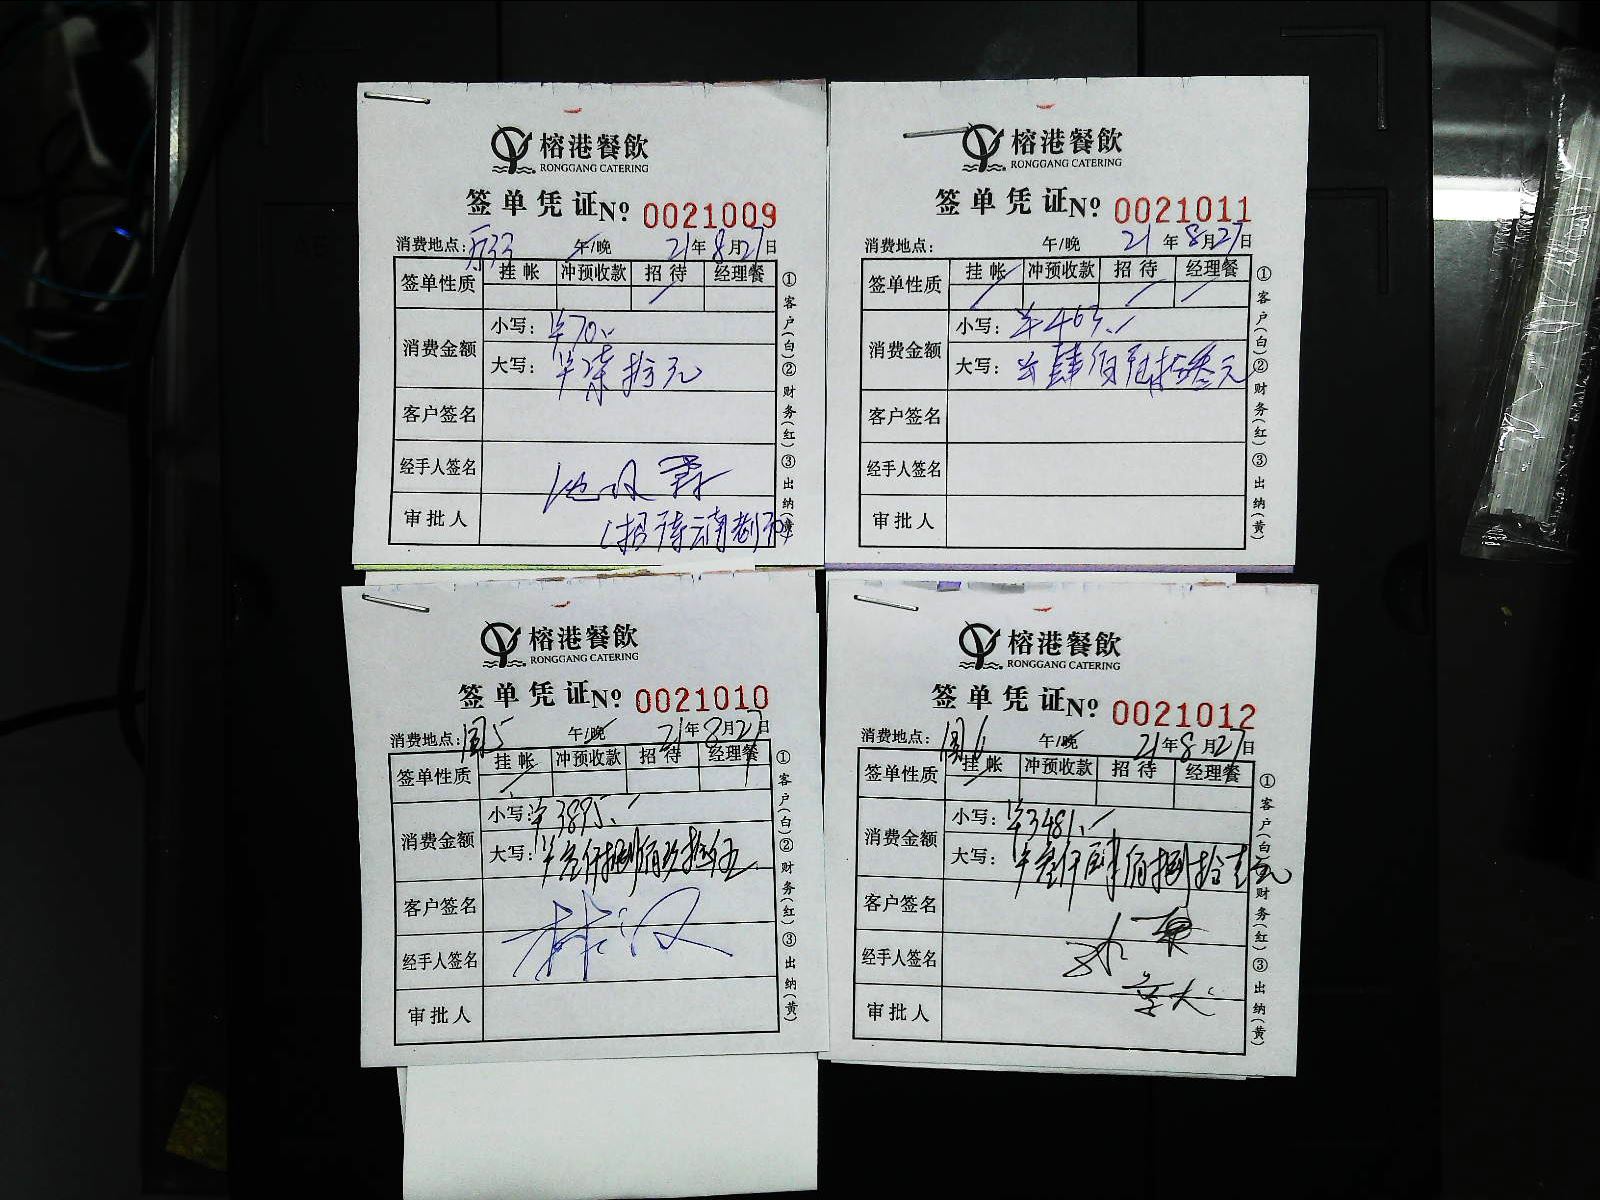 榕港餐飲
RONGGANG CATERING
签单凭证 Nº 0021009
消费地点: 午/晚 21年8月27日
签单性质 挂帐 冲预收款 招待 经理餐
消费金额
小写: ¥70.
大写: ¥柒拾元
客户签名
经手人签名
审批人
①客户(白)②财务(红)③出纳(黄)
榕港餐飲
RONGGANG CATERING
签单凭证 Nº 0021011
消费地点: 午/晚 21年8月27日
签单性质 挂帐 冲预收款 招待 经理餐
消费金额
小写: ¥463.
大写: ¥肆佰陆拾叁元
客户签名
经手人签名
审批人
①客户(白)②财务(红)③出纳(黄)
榕港餐飲
RONGGANG CATERING
签单凭证 Nº 0021010
消费地点: 午/晚 21年8月27日
签单性质 挂帐 冲预收款 招待 经理餐
消费金额
小写: ¥3895.
大写: ¥叁仟捌佰玖拾伍元
客户签名
林汉
经手人签名
审批人
①客户(白)②财务(红)③出纳(黄)
榕港餐飲
RONGGANG CATERING
签单凭证 Nº 0021012
消费地点: 午/晚 21年8月27日
签单性质 挂帐 冲预收款 招待 经理餐
消费金额
小写: ¥3481.
大写: ¥叁仟肆佰捌拾壹元
客户签名
经手人签名
审批人
①客户(白)②财务(红)③出纳(黄)